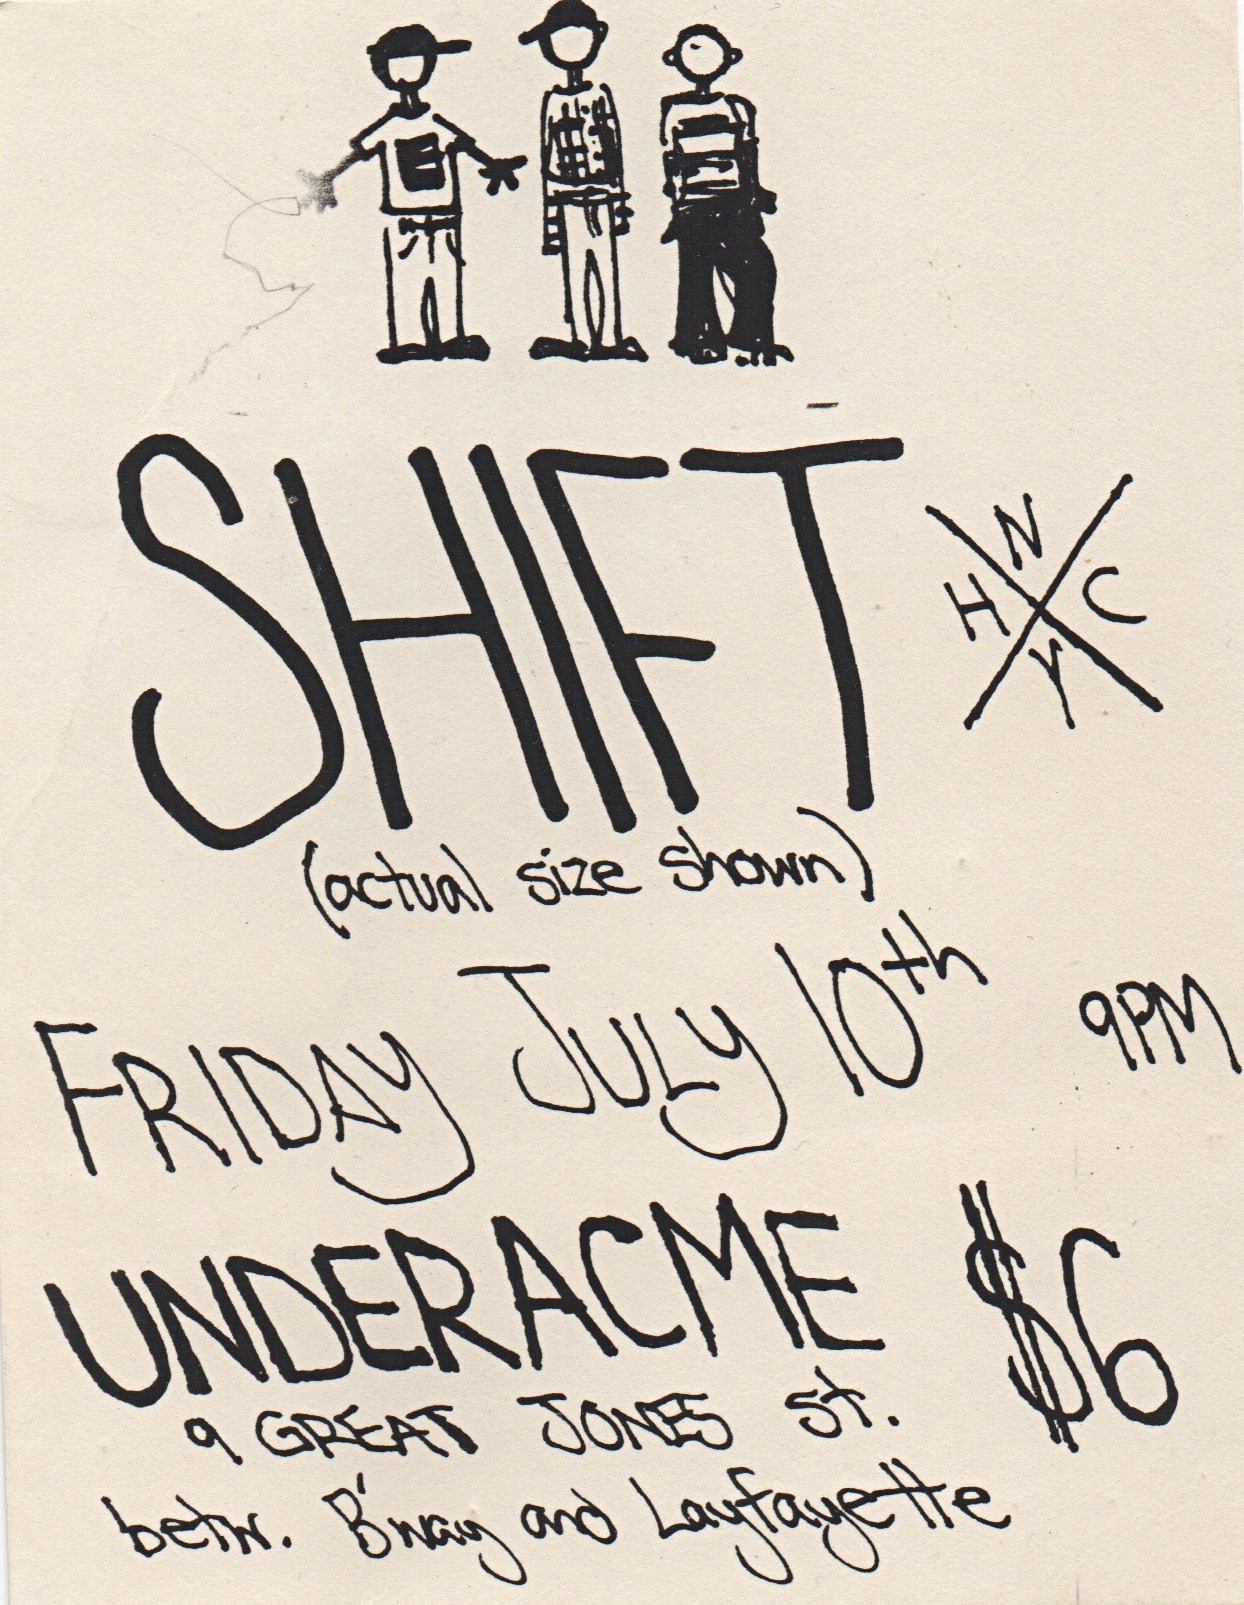 SHIFT
N
H C
Y
(actual size shown)
FRIDAY JULY 10th 9PM
UNDERACME $6
9 GREAT JONES St.
betw. B'way and Layfayette